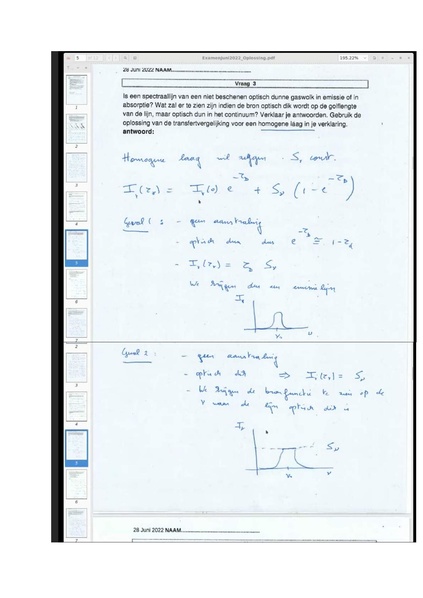 Examenjuni2022_Oplossing.pdf
195,22%
28 Juni 2022 NAAM
Vraag 3
Is een spectraallijn van een niet beschenen optisch dunne gaswolk in emissie of in
absorptie? Wat zal er te zien zijn indien de bron optisch dik wordt op de golflengte
van de lijn, maar optisch dun in het continuum? Verklaar je antwoorden. Gebruik de
oplossing van de transfertvergelijking voor een homogene laag in je verklaring.
antwoord:
Homogene laag wil zeggen Sν const.
Iν(τν) = Iν(0) e^-τν + Sν (1 - e^-τν)
Geval 1 : - geen aanstraling
- optisch dun dus e^-τν ≅ 1-τν
- Iν(τν) = τν Sν
We krijgen dus een emissielijn
Iν
ν₀ ν
Geval 2 : - geen aanstraling
- optisch dik ⇒ Iν(τν) = Sν
- We krijgen de bronfunctie te zien op de
ν waar de lijn optisch dik is
Iν
Sν
ν₀ ν
28 Juni 2022 NAAM